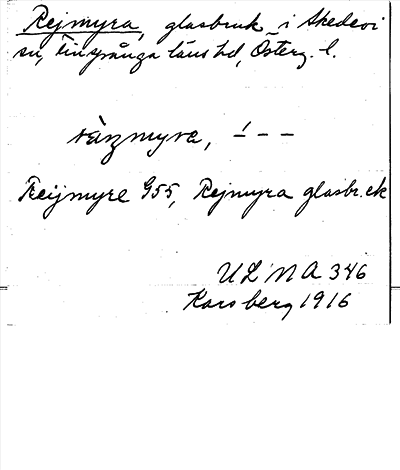 Rejmyra, glasbruk i Skedevi
sn, Finspånga läns hd, Österg. l.
myra, –́ – –
Reijmyre G55, Rejmyra glasbr. ek
ULMA 346
Karsberg 1916